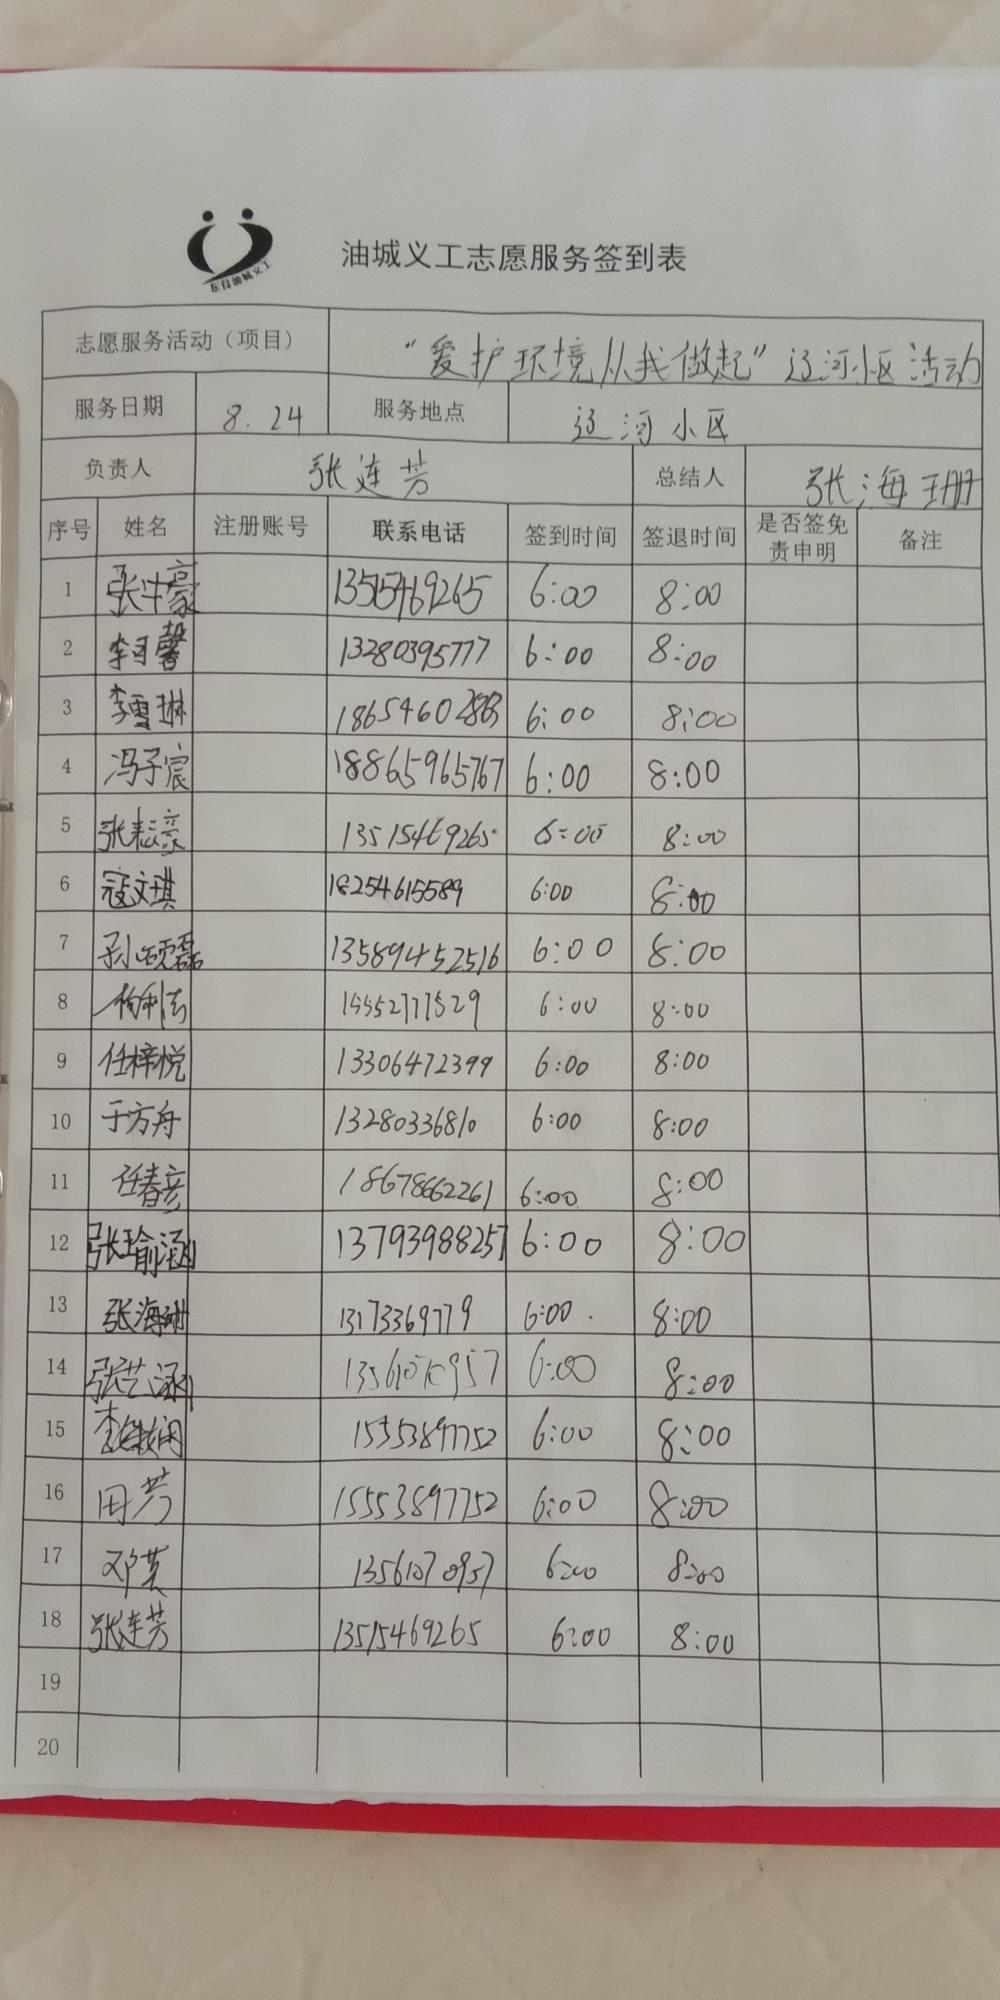 东营油城义工
油城义工志愿服务签到表
志愿服务活动（项目） “爱护环境从我做起”辽河小区活动
服务日期 8.24 服务地点 辽河小区
负责人 张连芳 总结人 张海珊
序号 姓名 注册账号 联系电话 签到时间 签退时间 是否签免责申明 备注
1 13515469265 6:00 8:00
2 李可馨 13280395777 6:00 8:00
3 李雪琳 18654602883 6:00 8:00
4 冯子宸 18865965767 6:00 8:00
5 13515469265 6:00 8:00
6 寇文琪 18254615589 6:00 8:00
7 孙硕磊 13589452516 6:00 8:00
8 6:00 8:00
9 任梓悦 13306472399 6:00 8:00
10 于方舟 13280336810 6:00 8:00
11 任春彦 18678662261 6:00 8:00
12 张瑜涵 13793988257 6:00 8:00
13 张海珊 13173369779 6:00 8:00
14 张艺涵 6:00 8:00
15 15553897752 6:00 8:00
16 田芳 15553897752 6:00 8:00
17 邓英 13561070957 6:00 8:00
18 张连芳 13515469265 6:00 8:00
19
20